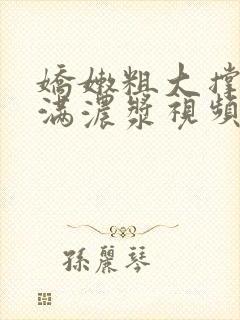 嬌嫩粗大撐
滿濃漿視頻
孫麗琴